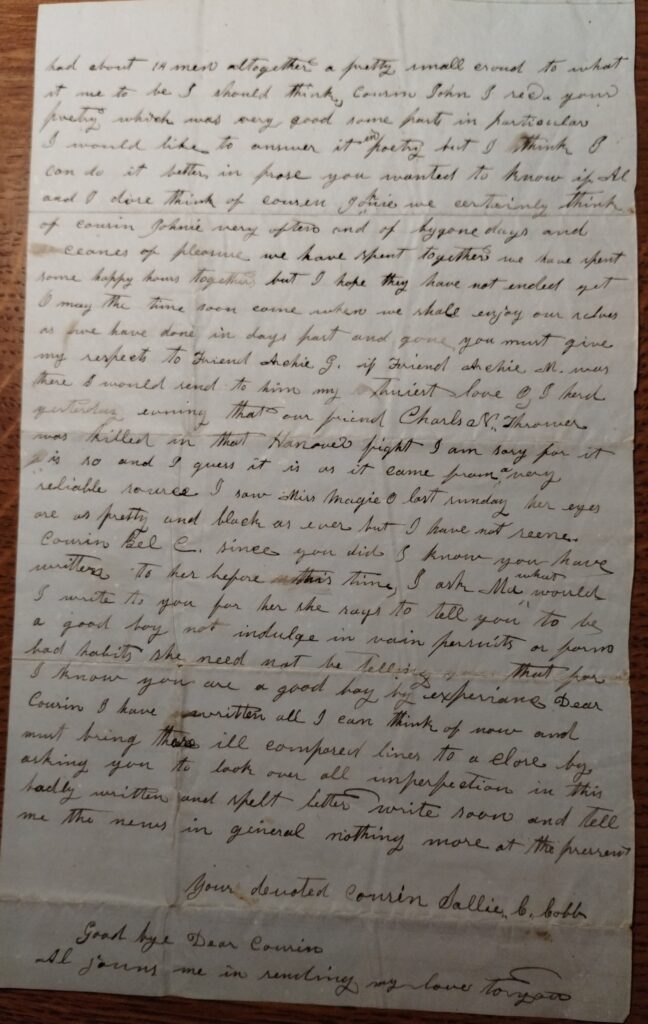 had about 14 men altogether a pretty small croud to what
it me to be I should think, Cousin John I red a your
poetry which was very good some parts in particular
I would like to answer it in poetry but I think I
can do it better in prose you wanted to know if Al
and I dore think of cousin Johnie we certainly think
of cousin Johnie very often and of bygone days and
sceanes of pleasure we have spent together we have spent
some happy hours together but I hope they have not ended yet
O may the time soon come when we shall enjoy our selves
as we have done in days past and gone you must give
my respects to Friend Archie G. if Friend Archie M. was
there I would send to him my love O, I herd
yesterday evening that our friend Charls N. Thrower
was killed in that Hanover fight I am sory for it
is so and I guess it is as it came from a very
reliable source I saw Miss Magie O last sunday her eyes
are as pretty and black as ever but I have not seene
Cousin Bel C. since you did I know you have
written to her before this time, I ask Ma what would
I write to you for her she says to tell you to be
a good boy not indulge in vain persuits or form
bad habits she need not be telling you that for
I know you are a good boy by experians Dear
Cousin I have written all I can think of now and
must bring these ill composed lines to a close by
asking you to look over all imperfection in this
badly written and spelt letter write soon and tell
me the news in general nothing more at the pressent
Your devoted Cousin Sallie C. Cobb
Good bye Dear Cousin
Al jouns me in sending my love to you